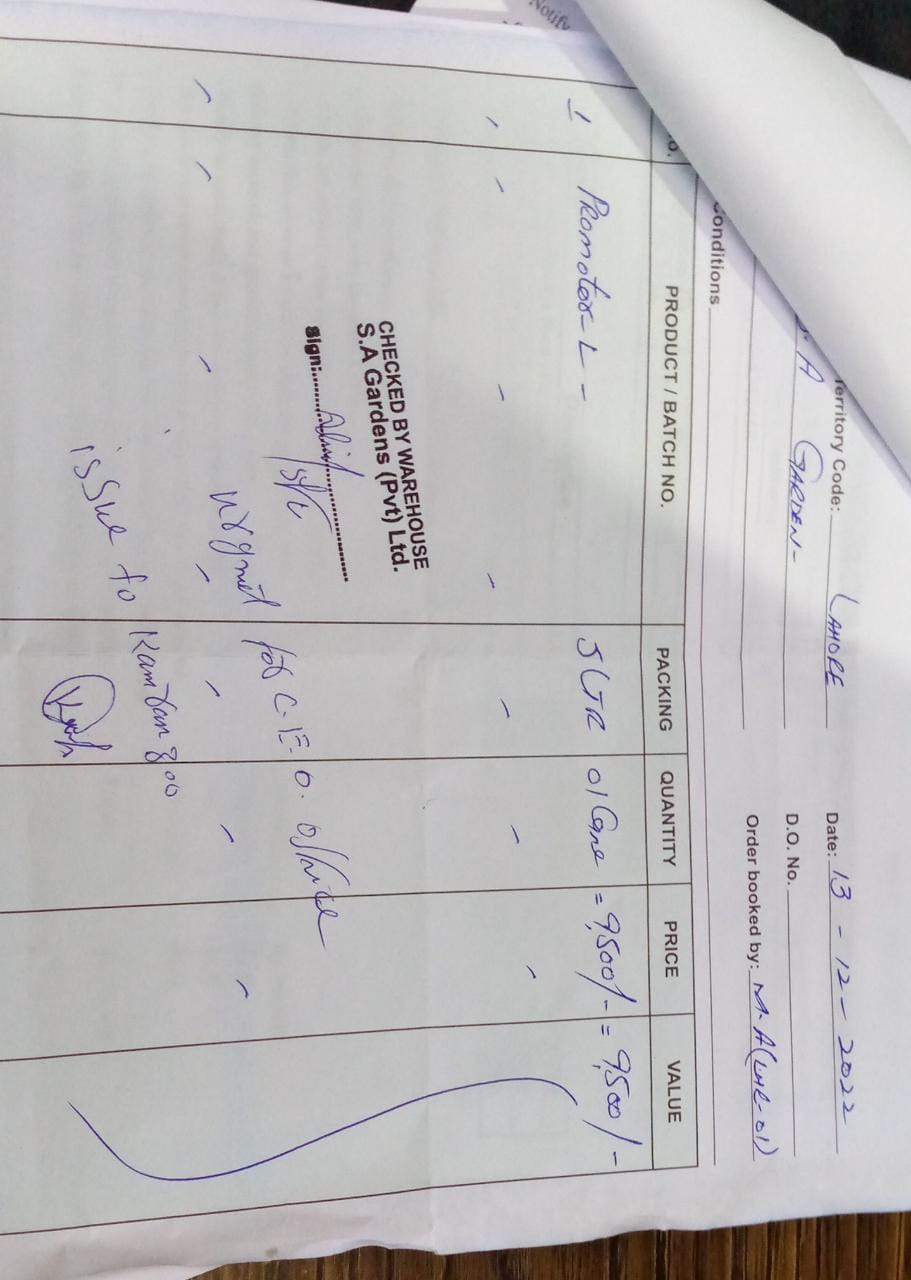 Notify
erritory Code: LAHORE
Date: 13-12-2022
.A GARDEN-
D.O. No.
Order booked by: M.A(LHR-01)
onditions
o. PRODUCT / BATCH NO. PACKING QUANTITY PRICE VALUE
1 Promoter-L - 5LTR 01 Cane = 9,500/- = 9,500/-
CHECKED BY WAREHOUSE
S.A Gardens (Pvt) Ltd.
Sign:
urgnet for C.E.O. office
issue to Kamran